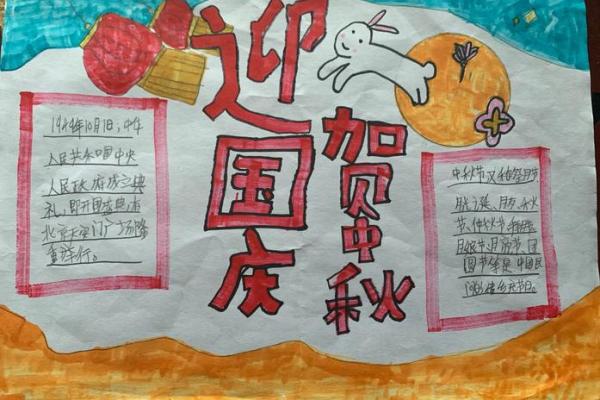 迎国庆
贺中秋
1949年10月1日,中华
人民共和国中央
人民政府成立典
礼,即开国盛典,在
北京天安门广场隆
重举行。
中秋节,又称祭月节、
节、仲秋节、
月娘节、月亮节、团
圆节等,是中国民
传统节日。